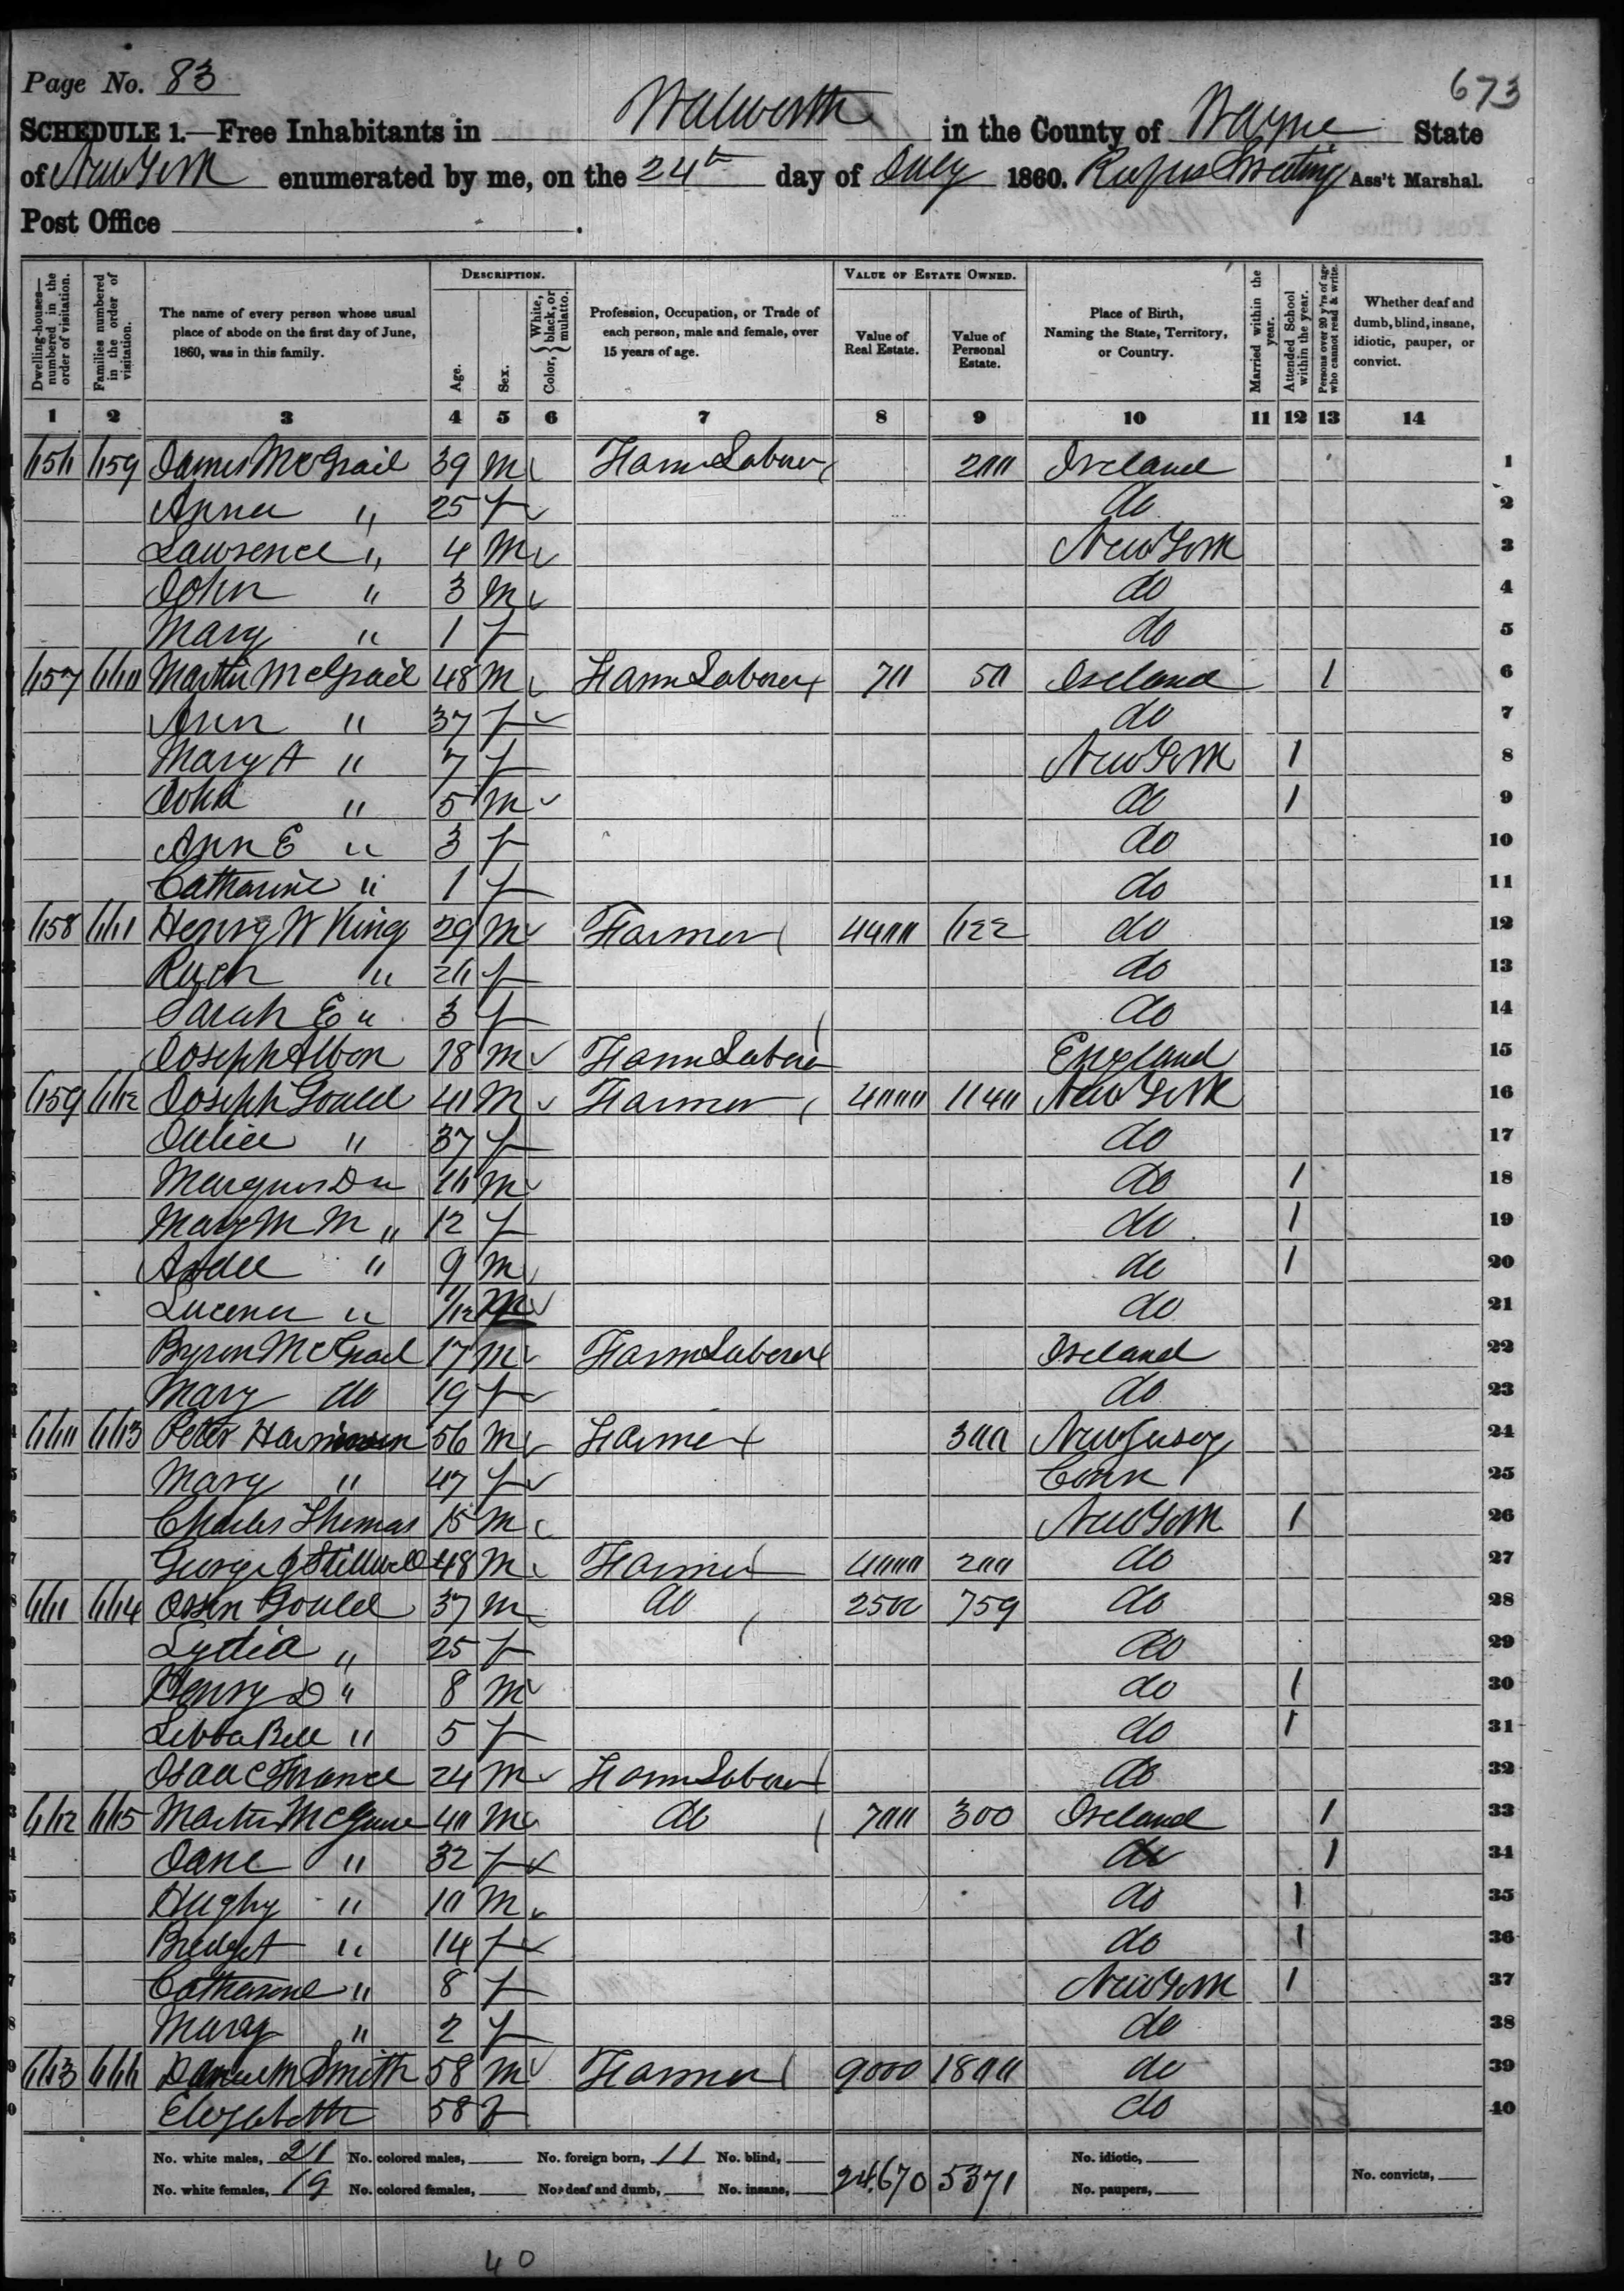 Page No. 83
673
SCHEDULE 1.—Free Inhabitants in Walworth in the County of Wayne State
of New York enumerated by me, on the 24th day of July 1860. Rufus Ass't Marshal.
Post Office
Dwelling-houses—numbered in the order of visitation. Families numbered in the order of visitation. The name of every person whose usual place of abode on the first day of June, 1860, was in this family. DESCRIPTION. Age. Sex. Color, { White, black, or mulatto. Profession, Occupation, or Trade of each person, male and female, over 15 years of age. VALUE OF ESTATE OWNED. Value of Real Estate. Value of Personal Estate. Place of Birth, Naming the State, Territory, or Country. Married within the year. Attended School within the year. Persons over 20 y'rs of age who cannot read & write. Whether deaf and dumb, blind, insane, idiotic, pauper, or convict.
1 2 3 4 5 6 7 8 9 10 11 12 13 14
656 659 James McGrail 39 m Farm Laborer 200 Ireland 1
Anna " 25 f do 2
Lawrence " 4 m New York 3
John " 3 m do 4
Mary " 1 f do 5
657 660 Martin McGrail 48 m Farm Laborer 70 50 Ireland 1 6
Ann " 37 f do 7
Mary A " 7 f New York 1 8
John " 5 m do 1 9
Ann E " 3 f do 10
Catharine " 1 f do 11
658 661 Henry W King 29 m Farmer 4400 622 do 12
" 26 f do 13
Sarah E " 3 f do 14
Joseph Albon 18 m Farm Laborer England 15
659 662 Joseph Gould 40 m Farmer 4000 1140 New York 16
" 37 f do 17
D " 16 m do 1 18
Mary M " 12 f do 1 19
" 9 m do 1 20
" 1/12 m do 21
Byron McGrail 17 m Farm Laborer Ireland 22
Mary do 19 f do 23
660 663 Peter 56 m Farmer 300 New Jersey 24
Mary " 47 f Conn 25
Charles Thomas 15 m New York 1 26
George J Stillwell 48 m Farmer 4000 200 do 27
661 664 Orsen Gould 37 m do 2500 759 do 28
Lydia " 25 f do 29
Henry D " 8 m do 1 30
Libba Bell " 5 f do 1 31
Isaac France 24 m Farm Laborer do 32
662 665 Martin 40 m do 700 300 Ireland 1 33
Jane " 32 f do 1 34
Hughy " 10 m do 1 35
Bridget " 14 f do 1 36
Catharine " 8 f New York 1 37
Mary " 2 f do 38
663 666 Smith 58 m Farmer 9000 1800 do 39
Elizabeth 58 f do 40
No. white males, 21 No. colored males, No. foreign born, 11 No. blind, 24,670 5371 No. idiotic, No. convicts,
No. white females, 19 No. colored females, No. deaf and dumb, No. insane, No. paupers,
40